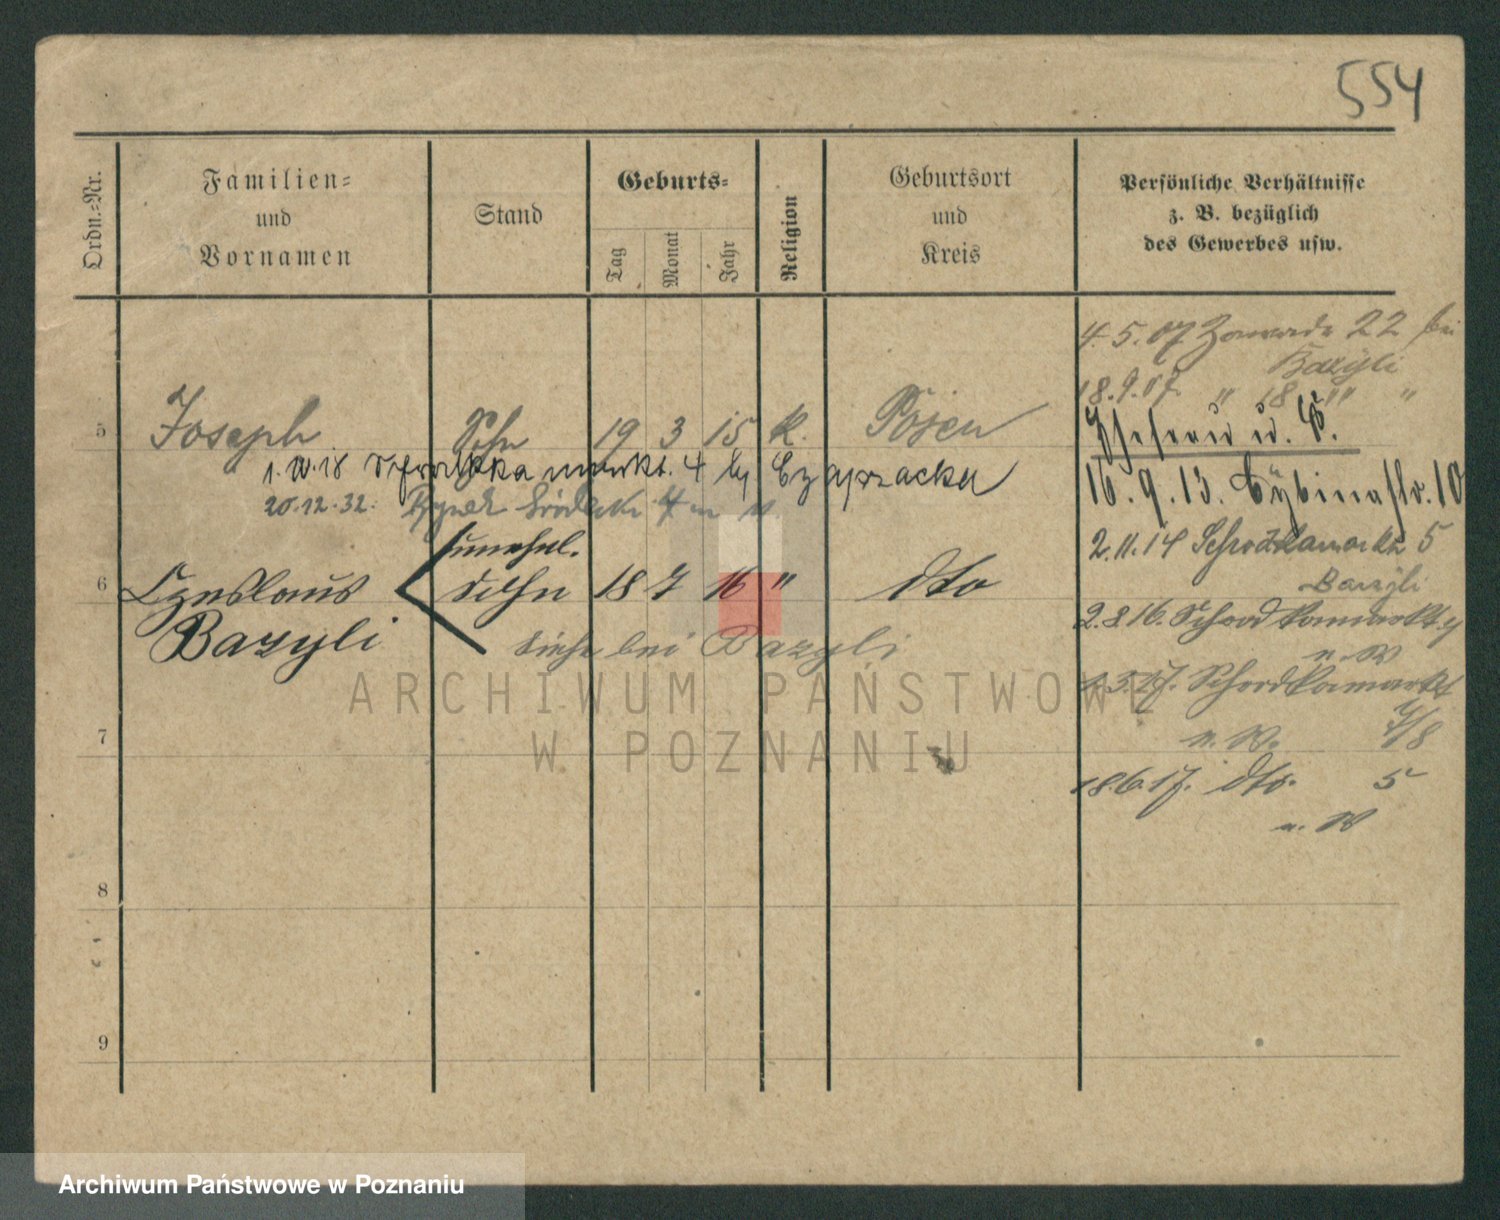 554
Ordn.-Nr.
Familien-
und
Vornamen
Stand
Geburts-
Tag
Monat
Jahr
Religion
Geburtsort
und
Kreis
Persönliche Verhältnisse
z. B. bezüglich
des Gewerbes usw.
4.5.07 Zawade 22 bei
Bazyli
18.9.07. " 18 " "
5 Joseph Sohn 19 3 15 k. Posen
Ehefrau u. S.
1. W. 18 Schrodkamarkt. 4 by Czapracka
16.9.13. Cybinastr. 10
20.12.32. Rynek Śródecki 4 m
2.11.14 Schrodkamarkt 5
Bazyli
unehel.
6 Czeslaus Sohn 18 7 16 " dto
Bazyli siehe bei Bazyli
2.8.16. Schrodkamarkt 4
n. W
1.3.17. Schrodkamarkt
7/8
n. W.
7
18.6.17. dto. 5
n. W
8
9
ARCHIWUM PAŃSTWOWE
W POZNANIU
Archiwum Państwowe w Poznaniu